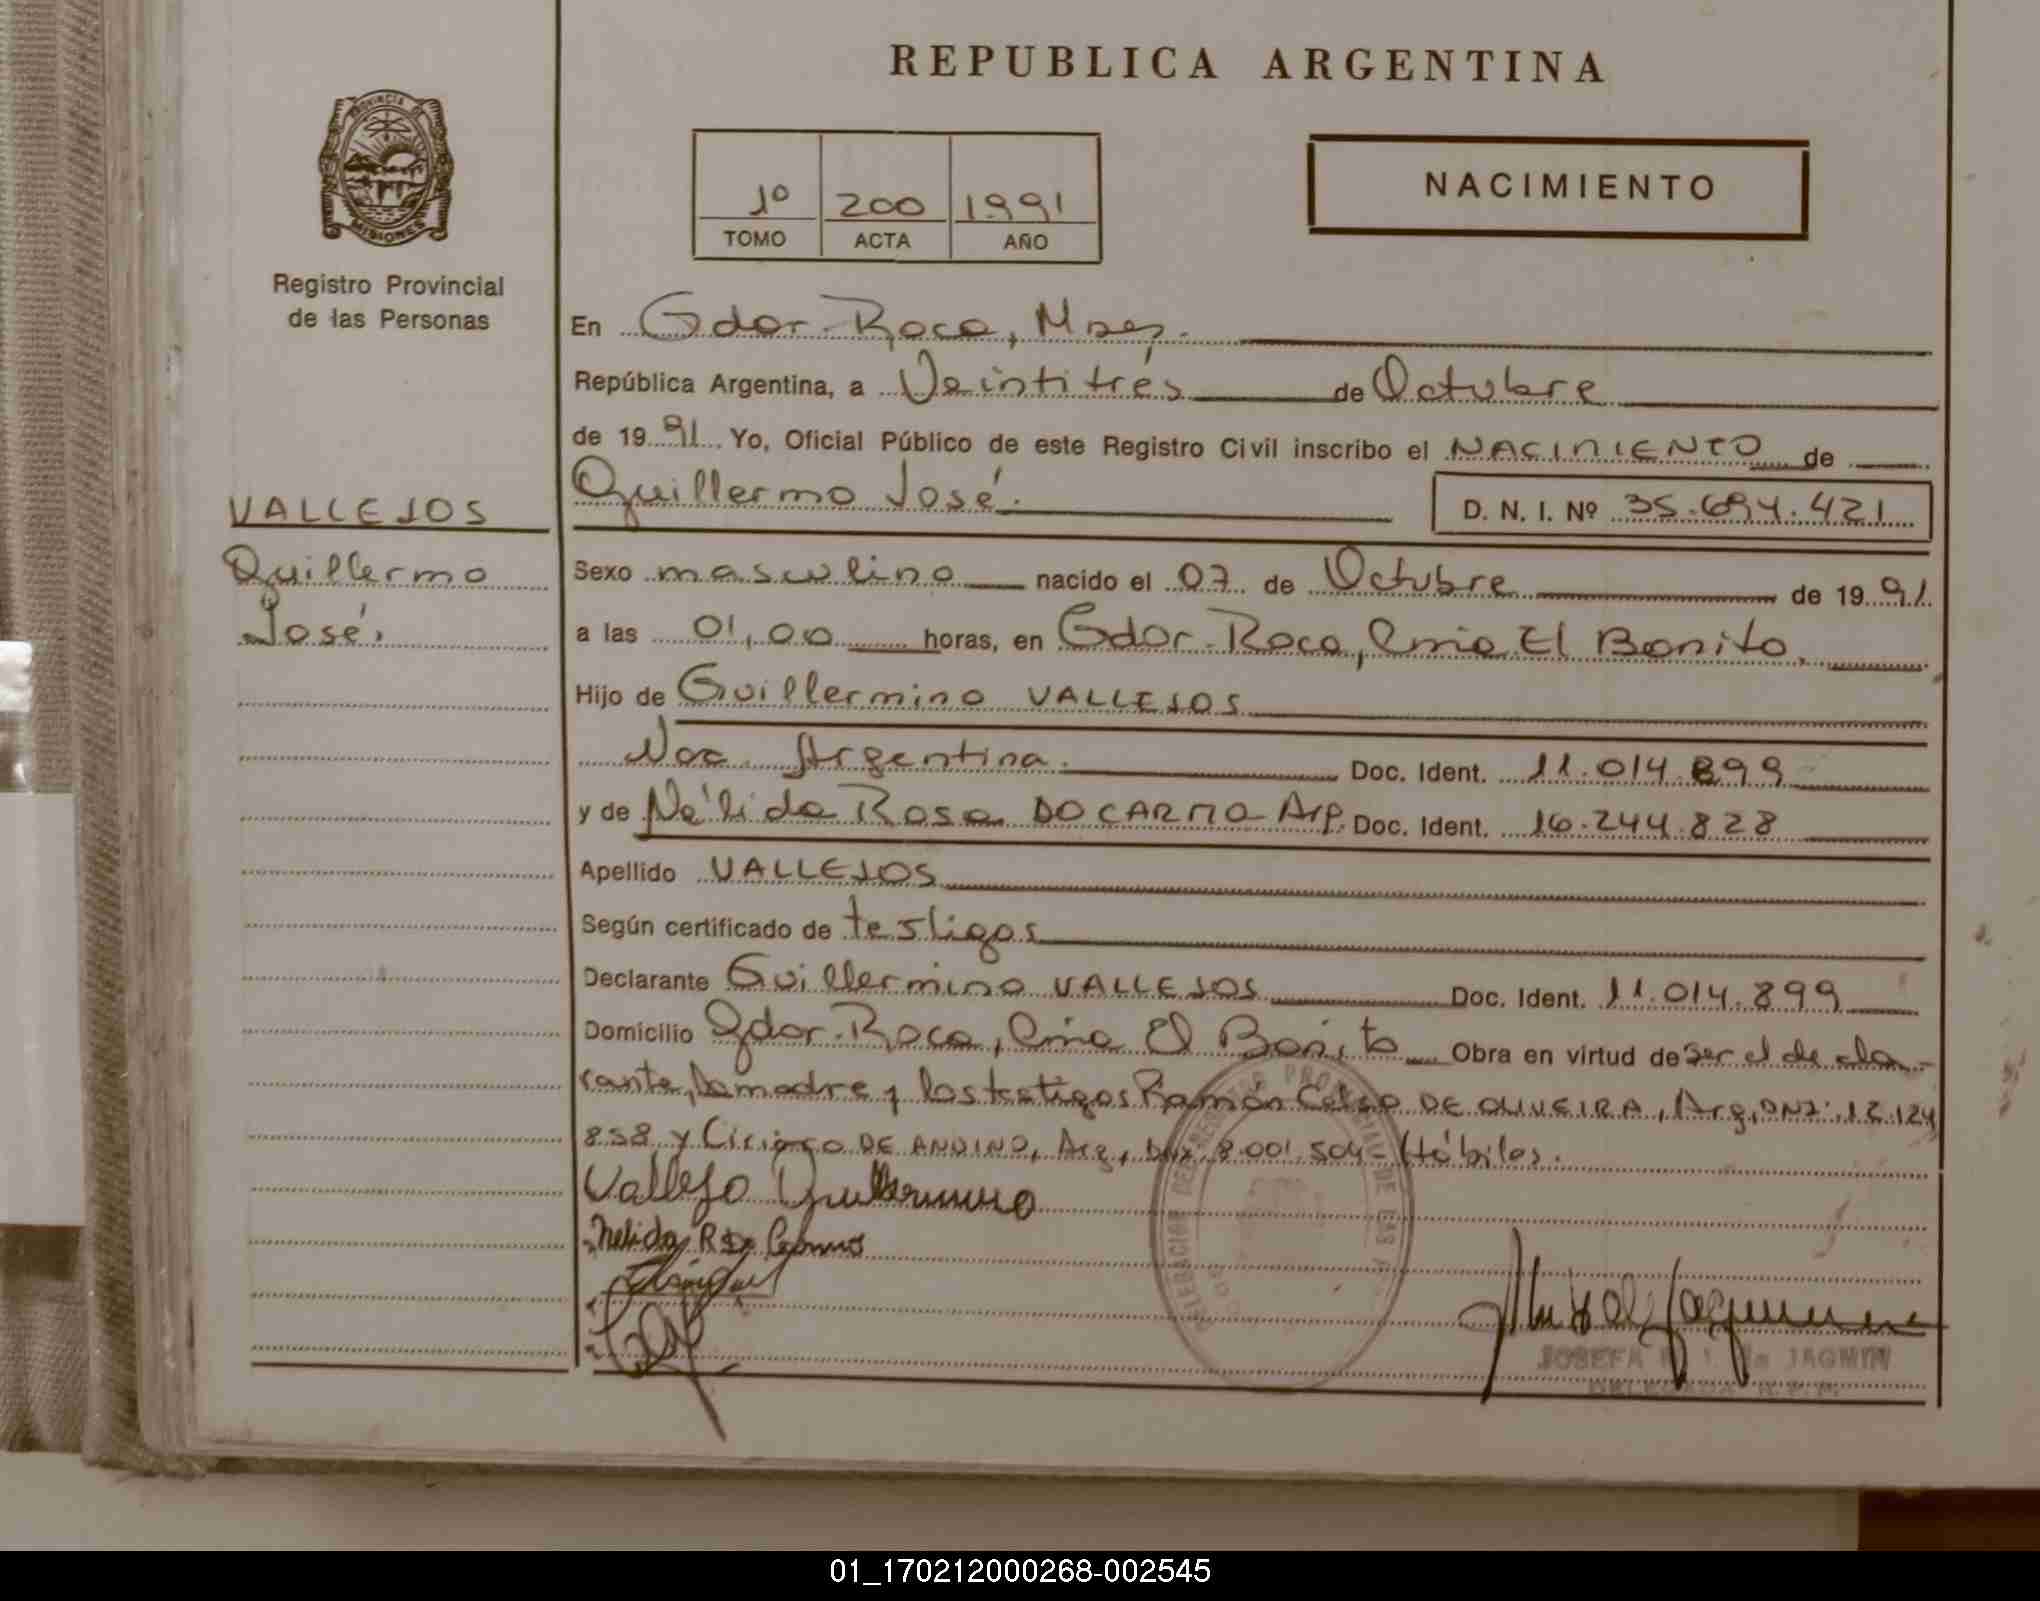 REPUBLICA ARGENTINA
PROVINCIA DE
MISIONES
Registro Provincial
de las Personas
1º 200 1991
TOMO ACTA AÑO
NACIMIENTO
En Gdor. Roca, Mnes.
República Argentina, a Veintitrés de Octubre
de 1991 Yo, Oficial Público de este Registro Civil inscribo el NACIMIENTO de
Guillermo José.
D. N. I. Nº 35.694.421
VALLEJOS
Guillermo
José.
Sexo masculino nacido el 07 de Octubre de 1991.
a las 01,00 horas, en Gdor. Roca, Cnia El Bonito.
Hijo de Guillermino VALLEJOS
Nac. Argentina. Doc. Ident. 11.014.899
y de Nélida Rosa DO CARMO Arg. Doc. Ident. 16.244.828
Apellido VALLEJOS
Según certificado de testigos
Declarante Guillermino VALLEJOS Doc. Ident. 11.014.899
Domicilio Gdor. Roca, Cnia El Bonito Obra en virtud de ser el decla-
rante, la madre y los testigos Ramón Celso DE OLIVEIRA, Arg, DNI: 12.124
858 y Ciriaco DE ANDINO, Arg, DNI. 8.001.504- Hábiles.
Vallejo Guillermino
Nelida R Do Carmo
DELEGACION DEL REGISTRO PROVINCIAL DE LAS
JOSEFA de JAGMIN
DELEGADA R.P.P.
01_170212000268-002545